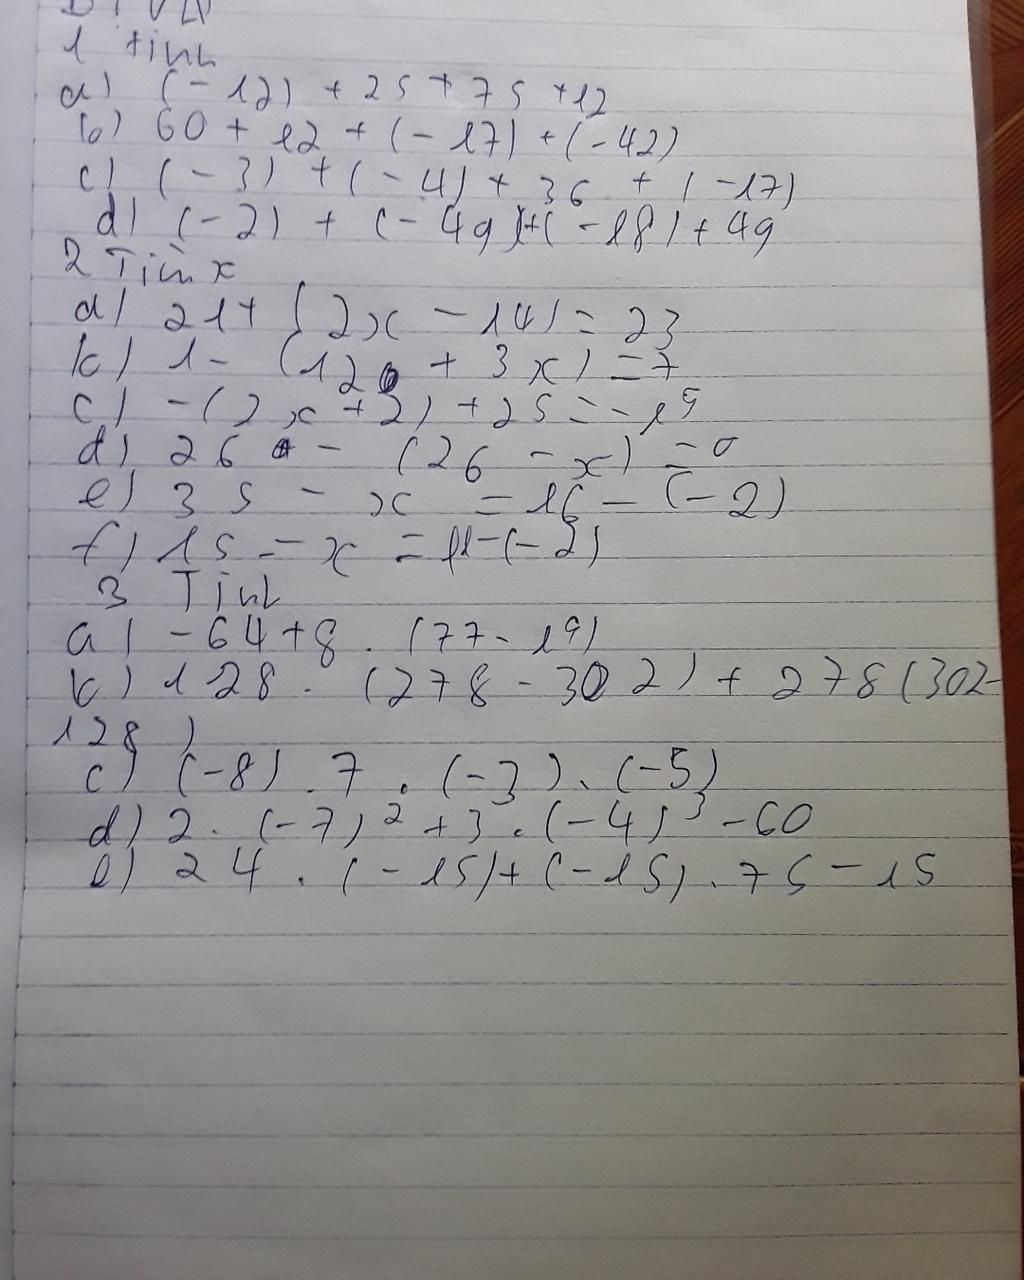 BTVN
1 tính
a) (-12) + 25 + 75 + 12
b) 60 + 12 + (-17) + (-42)
c) (-3) + (-4) + 36 + (-17)
d) (-2) + (-49) + (-18) + 49
2 Tìm x
a) 21 + (2x - 14) = 23
b) 1 - (12 + 3x) = 7
c) -(2x + 2) + 25 = -19
d) 26 - (26 - x) = 0
e) 35 - x = 16 - (-2)
f) 15 - x = 11 - (-2)
3 Tính
a) -64 + 8 . (77 - 19)
b) 128 . (278 - 302) + 278 (302 -
128)
c) (-8) . 7 . (-3) . (-5)
d) 2 . (-7)² + 3 . (-4)³ - 60
e) 24 . (-15) + (-15) . 75 - 15